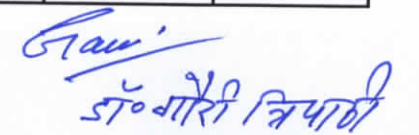 Gauri
डॉ० गौरी त्रिपाठी